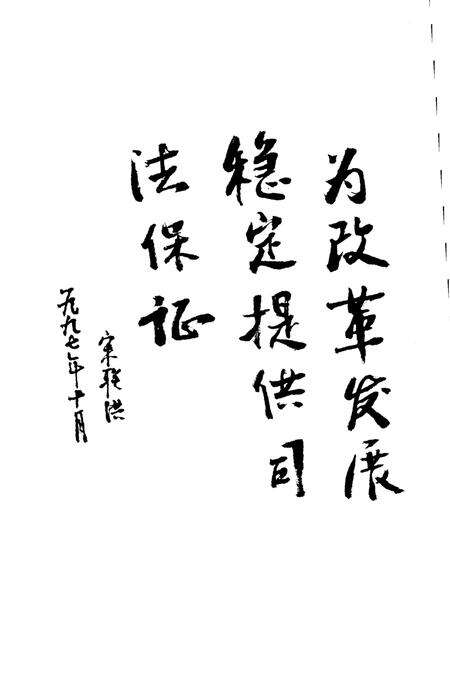 为改革发展
稳定提供司
法保证
宋联洪
一九九七年十月